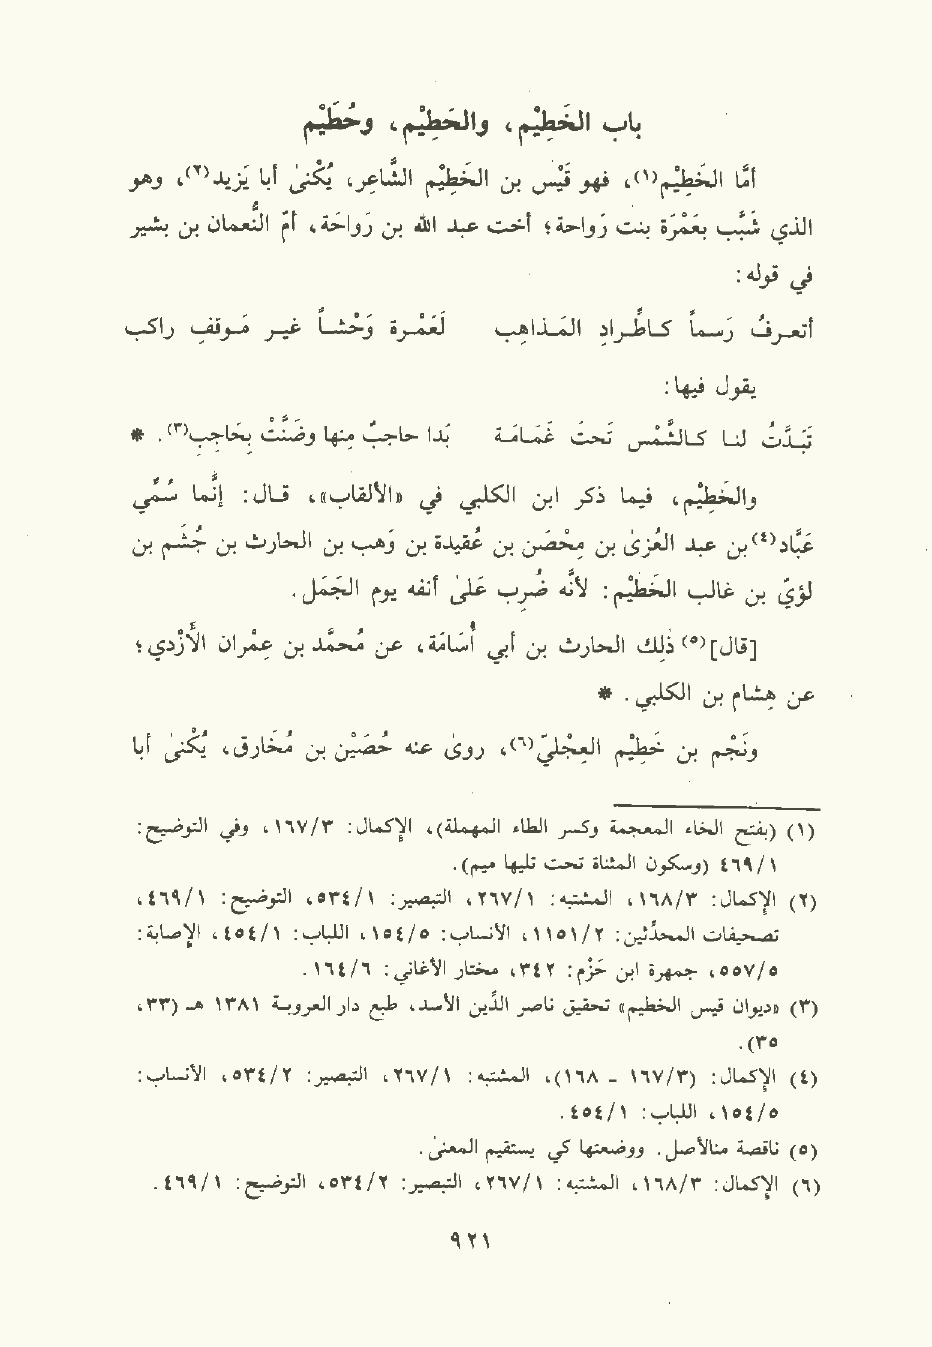 باب الخَطِيْم، والخَطِيْم، وحُطَيْم
أمَّا الخَطِيْم(١)، فهو قَيْس بن الخَطِيْم الشَّاعِر، يُكْنىٰ أبا يَزيد(٢)، وهو
الذي شَبَّب بعَمْرة بنت رَواحة؛ أخت عبد الله بن رَواحَة، أم النُّعمان بن بشير
في قوله:
أتعـرفُ رَسـماً كـاطِّـرادِ المَـذاهِب لَعَمْـرة وَحْشـاً غيـر مَـوقِفِ راكب
يقول فيها:
تَبَـدَّتْ لنـا كـالشَّمْس تَحتَ غَمَـامَـة بَدا حاجبٌ مِنها وضَنَّتْ بحَاجِبِ(٣). *
والخَطِيْم، فيما ذكر ابن الكلبي في «الألقاب»، قـال: إنَّما سُمِّي
عَبَّاد(٤) بن عبد العُزى بن مِحْصَن بن عُقيدة بن وَهب بن الحارث بن جُشَم بن
لؤيّ بن غالب الخَطِيْم: لأنه ضُرِب عَلىٰ أنفه يوم الجَمَل.
[قال](٥) ذلك الحارث بن أبي أُسَامَة، عن مُحمَّد بن عِمْران الأَزْدي؛
عن هِشام بن الكلبي. *
ونَجْم بن خَطِيْم العِجْليّ(٦)، روىٰ عنه حُصَيْن بن مُخَارق، يُكْنىٰ أبا
(١) (بفتح الخاء المعجمة وكسر الطاء المهملة)، الإكمال: ٣/١٦٧، وفي التوضيح:
١/٤٦٩ (وسكون المثناة تحت تليها ميم).
(٢) الإكمال: ٣/١٦٨، المشتبه: ١/٢٦٧، التبصير: ١/٥٣٤، التوضيح: ١/٤٦٩،
تصحيفات المحدّثين: ٢/١١٥١، الأنساب: ٥/١٥٤، اللباب: ١/٤٥٤، الإصابة:
٥/٥٥٧، جمهرة ابن حَزم: ٣٤٢، مختار الأغاني: ٦/١٦٤.
(٣) «ديوان قيس الخطيم» تحقيق ناصر الدّين الأسد، طبع دار العروبـة ١٣٨١ هـ (٣٣،
٣٥).
(٤) الإكمال: (٣/١٦٧ - ١٦٨)، المشتبه: ١/٢٦٧، التبصير: ٢/٥٣٤، الأنساب:
٥/١٥٤، اللباب: ١/٤٥٤.
(٥) ناقصة منالأصل. ووضعتها كي يستقيم المعنىٰ.
(٦) الإكمال: ٣/١٦٨، المشتبه: ١/٢٦٧، التبصير: ٢/٥٣٤، التوضيح: ١/٤٦٩.
٩٢١